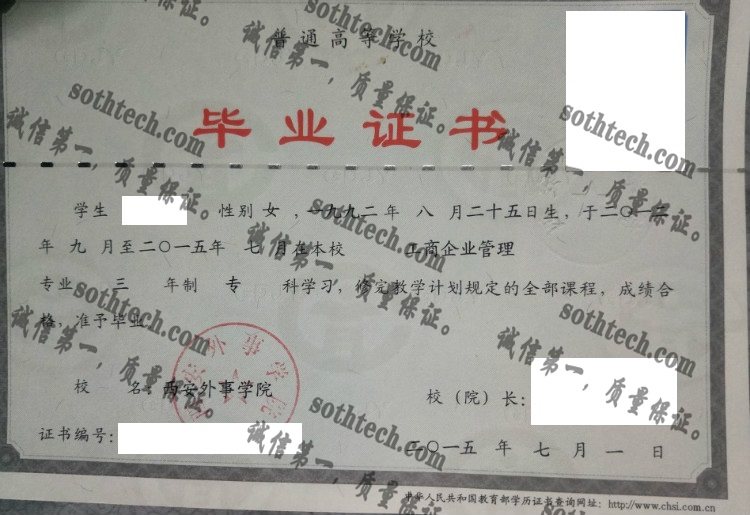 普通高等学校
毕业证书
学生 性别 女 ，一九九二 年 八 月二十五日生，于二〇一二
年 九 月至二〇一五年 七 月在本校 工商企业管理
专业 三 年制 专 科学习，修完教学计划规定的全部课程，成绩合
格，准予毕业。
校 名：西安外事学院
校（院）长：
证书编号：
二〇一五 年 七 月 一 日
中华人民共和国教育部学历证书查询网址：http://www.chsi.com.cn
sothtech.com
诚信第一，质量保证。
sothtech.com
诚信第一，质量保证。
sothtech.com
诚信第一，质量保证。
sothtech.com
诚信第一，质量保证。
sothtech.com
诚信第一，质量保证。
sothtech.com
诚信第一，质量保证。
sothtech.com
诚信第一，质量保证。
sothtech.com
诚信第一，质量保证。
sothtech.com
诚信第一，质量保证。